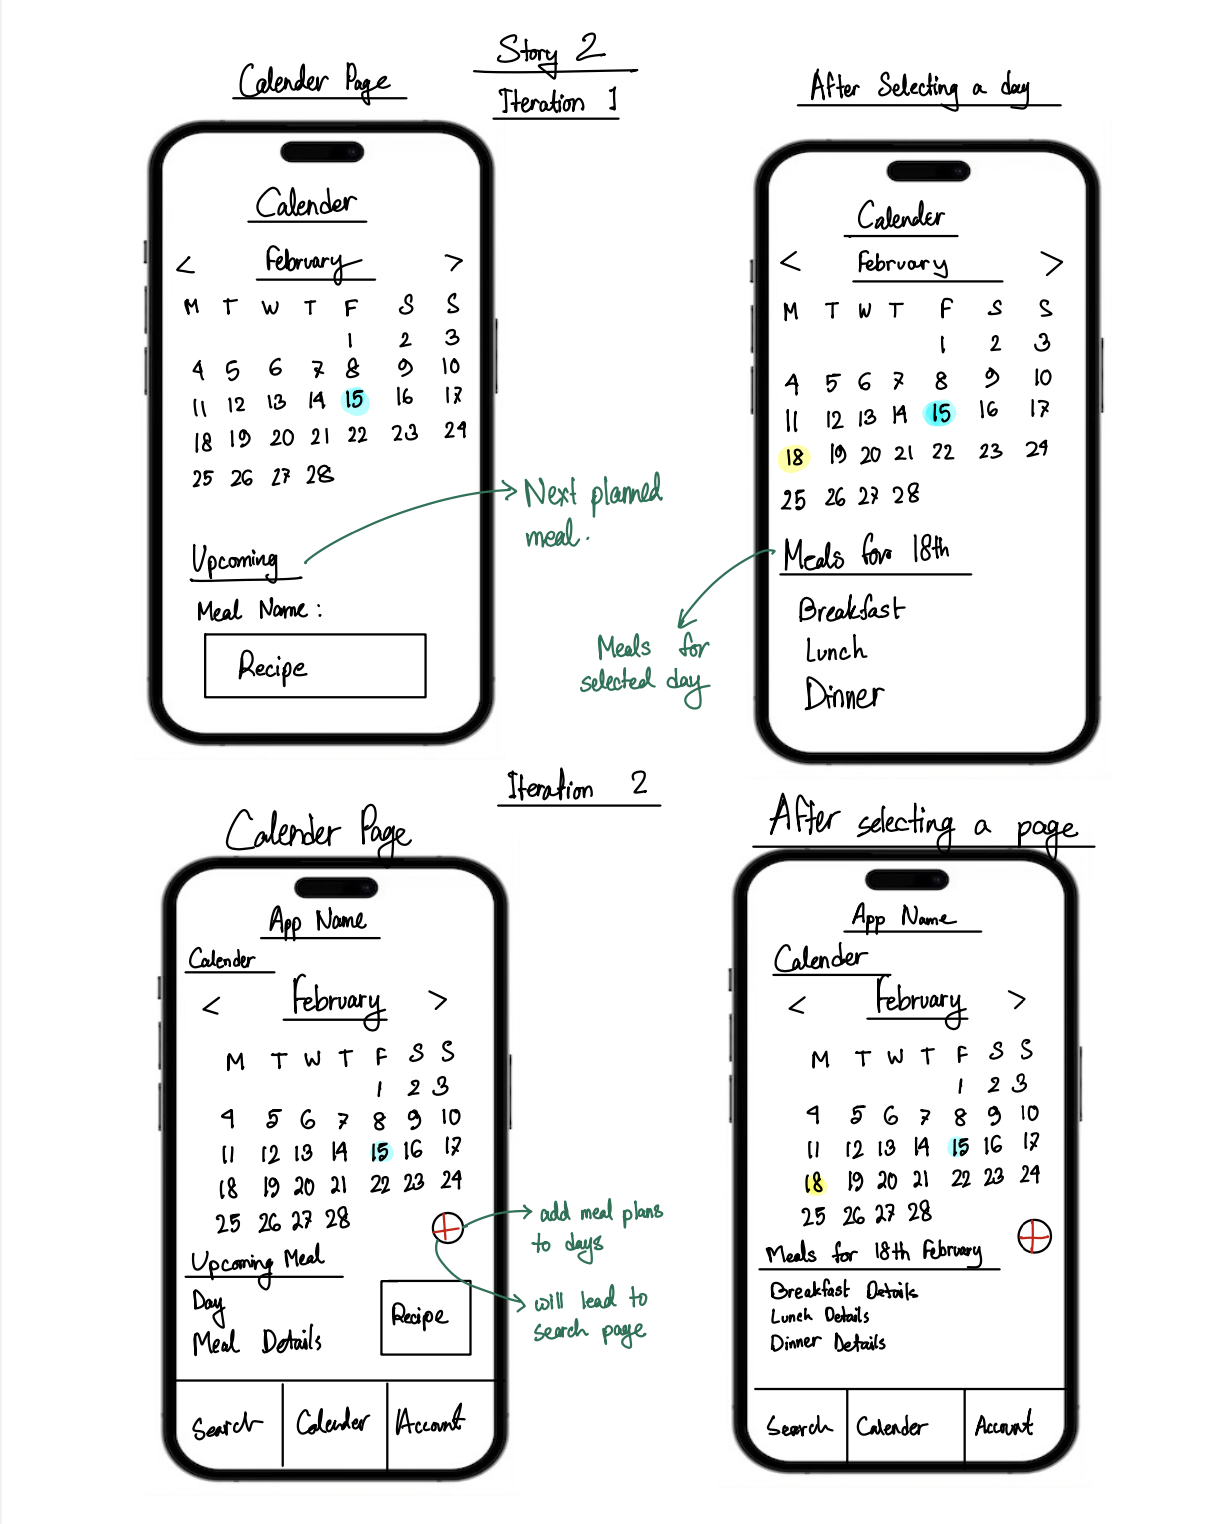 Story 2
Iteration 1
Calender Page
Calender
< February >
M T W T F S S
1 2 3
4 5 6 7 8 9 10
11 12 13 14 15 16 17
18 19 20 21 22 23 24
25 26 27 28
Upcoming
Meal Name:
Recipe
Next planned
meal.
After Selecting a day
Calender
< February >
M T W T F S S
1 2 3
4 5 6 7 8 9 10
11 12 13 14 15 16 17
18 19 20 21 22 23 24
25 26 27 28
Meals for 18th
Breakfast
Lunch
Dinner
Meals for
selected day
Iteration 2
Calender Page
App Name
Calender
< February >
M T W T F S S
1 2 3
4 5 6 7 8 9 10
11 12 13 14 15 16 17
18 19 20 21 22 23 24
25 26 27 28
Upcoming Meal
Day
Meal Details
Recipe
Search Calender Account
add meal plans
to days
will lead to
search page
After selecting a page
App Name
Calender
< February >
M T W T F S S
1 2 3
4 5 6 7 8 9 10
11 12 13 14 15 16 17
18 19 20 21 22 23 24
25 26 27 28
Meals for 18th February
Breakfast Details
Lunch Details
Dinner Details
Search Calender Account